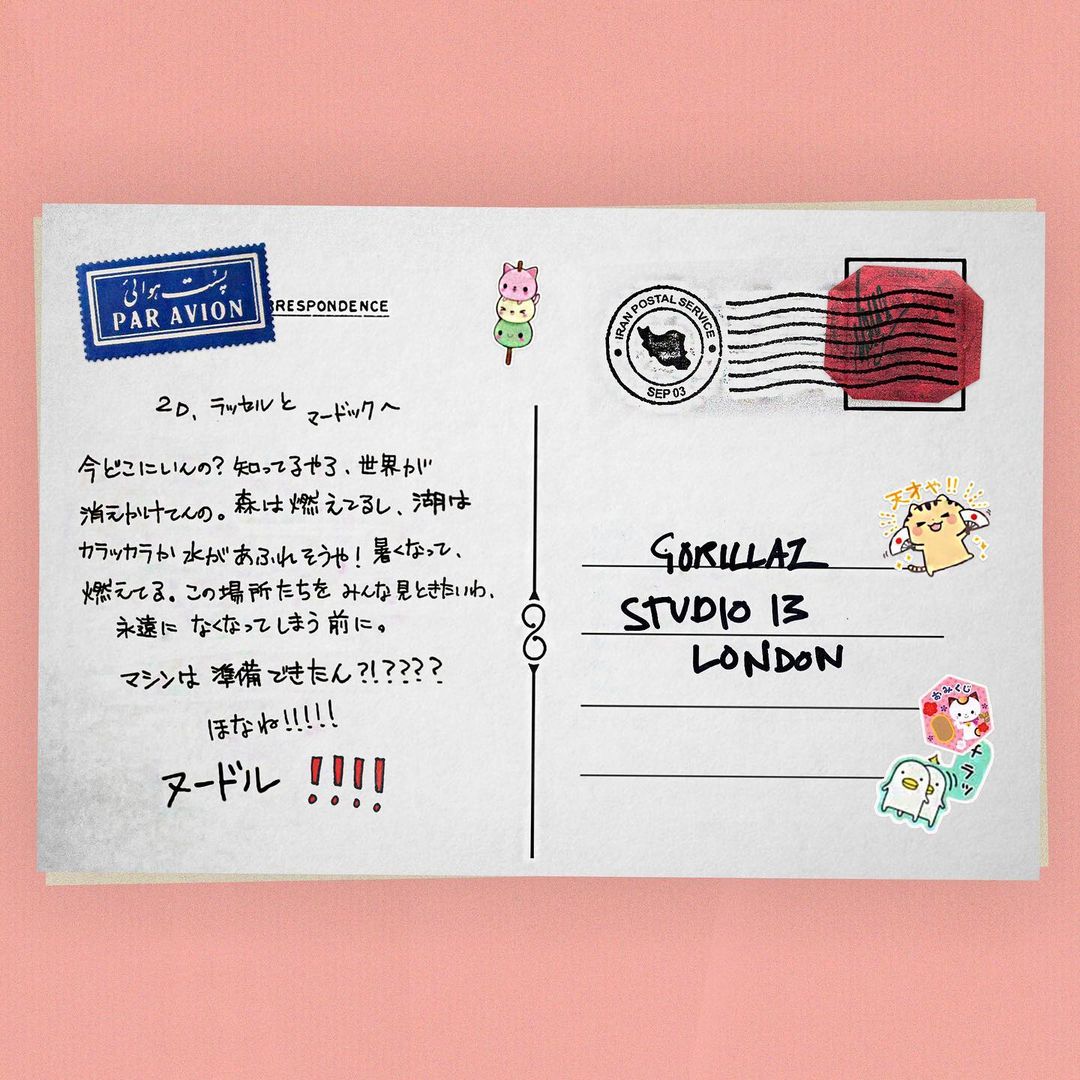 پست هوائی
PAR AVION
RRESPONDENCE
2D、ラッセルと マードックへ
今どこにいんの？知ってるやろ、世界が
消えかけてんの。森は燃えてるし、湖は
カラッカラか水があふれそうや！暑くなって、
燃えてる。この場所たちをみんな見ときたいわ、
永遠に なくなってしまう前に。
マシンは 準備できたん？！？？？？
ほなね！！！！！
ヌードル ！！！！
IRAN POSTAL SERVICE
SEP 03
天才や！！
GORILLAZ
STUDIO 13
LONDON
おみくじ
チラッ